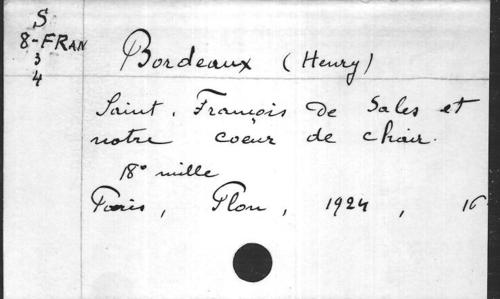 S
8-FRAN
3
4
Bordeaux (Henry)
Saint. François de Sales et
notre coeur de chair.
18° mille
Paris, Plon, 1924, 16